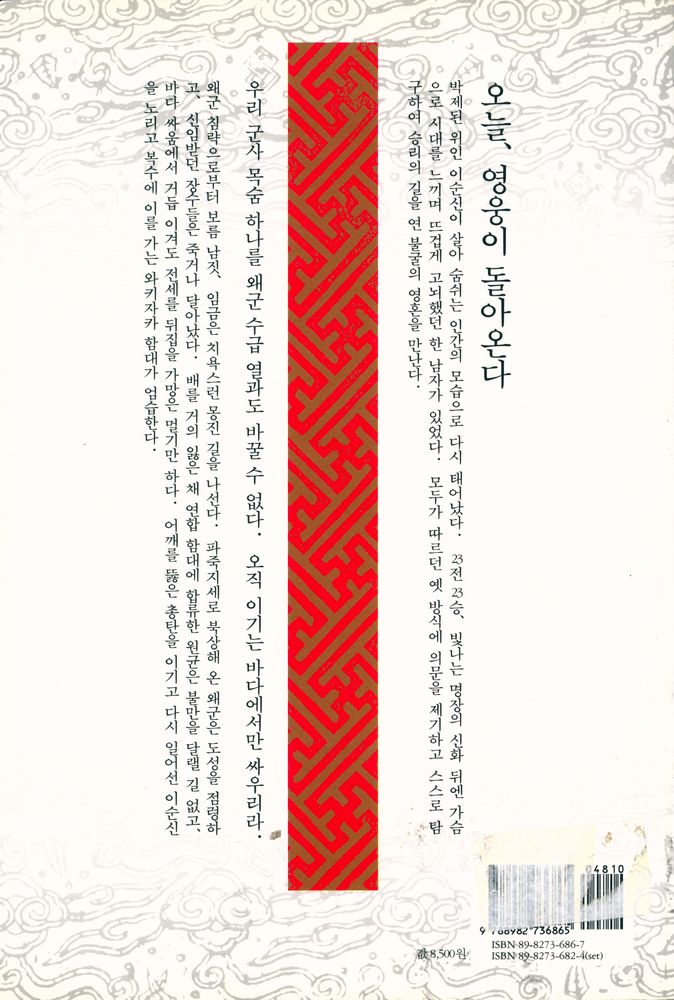 오늘, 영웅이 돌아온다
박제된 위인 이순신이 살아 숨쉬는 인간의 모습으로 다시 태어났다. 23전 23승, 빛나는 명장의 신화 뒤엔 가슴
으로 시대를 느끼며 뜨겁게 고뇌했던 한 남자가 있었다. 모두가 따르던 옛 방식에 의문을 제기하고 스스로 탐
구하여 승리의 길을 연 불굴의 영혼을 만난다.
우리 군사 목숨 하나를 왜군 수급 열과도 바꿀 수 없다. 오직 이기는 바다에서만 싸우리라.
왜군 침략으로부터 보름 남짓, 임금은 치욕스런 몽진 길을 나선다. 파죽지세로 북상해 온 왜군은 도성을 점령하
고, 신임받던 장수들은 죽거나 달아났다. 배를 거의 잃은 채 연합 함대에 합류한 원균은 불만을 달랠 길 없고,
바다 싸움에서 거듭 이겨도 전세를 뒤집을 가망은 멀기만 하다. 어깨를 뚫은 총탄을 이기고 다시 일어선 이순신
을 노리고 복수에 이를 가는 와키자카 함대가 엄습한다.
04810
9 788982 736865
ISBN 89-8273-686-7
ISBN 89-8273-682-4(set)
값 8,500원